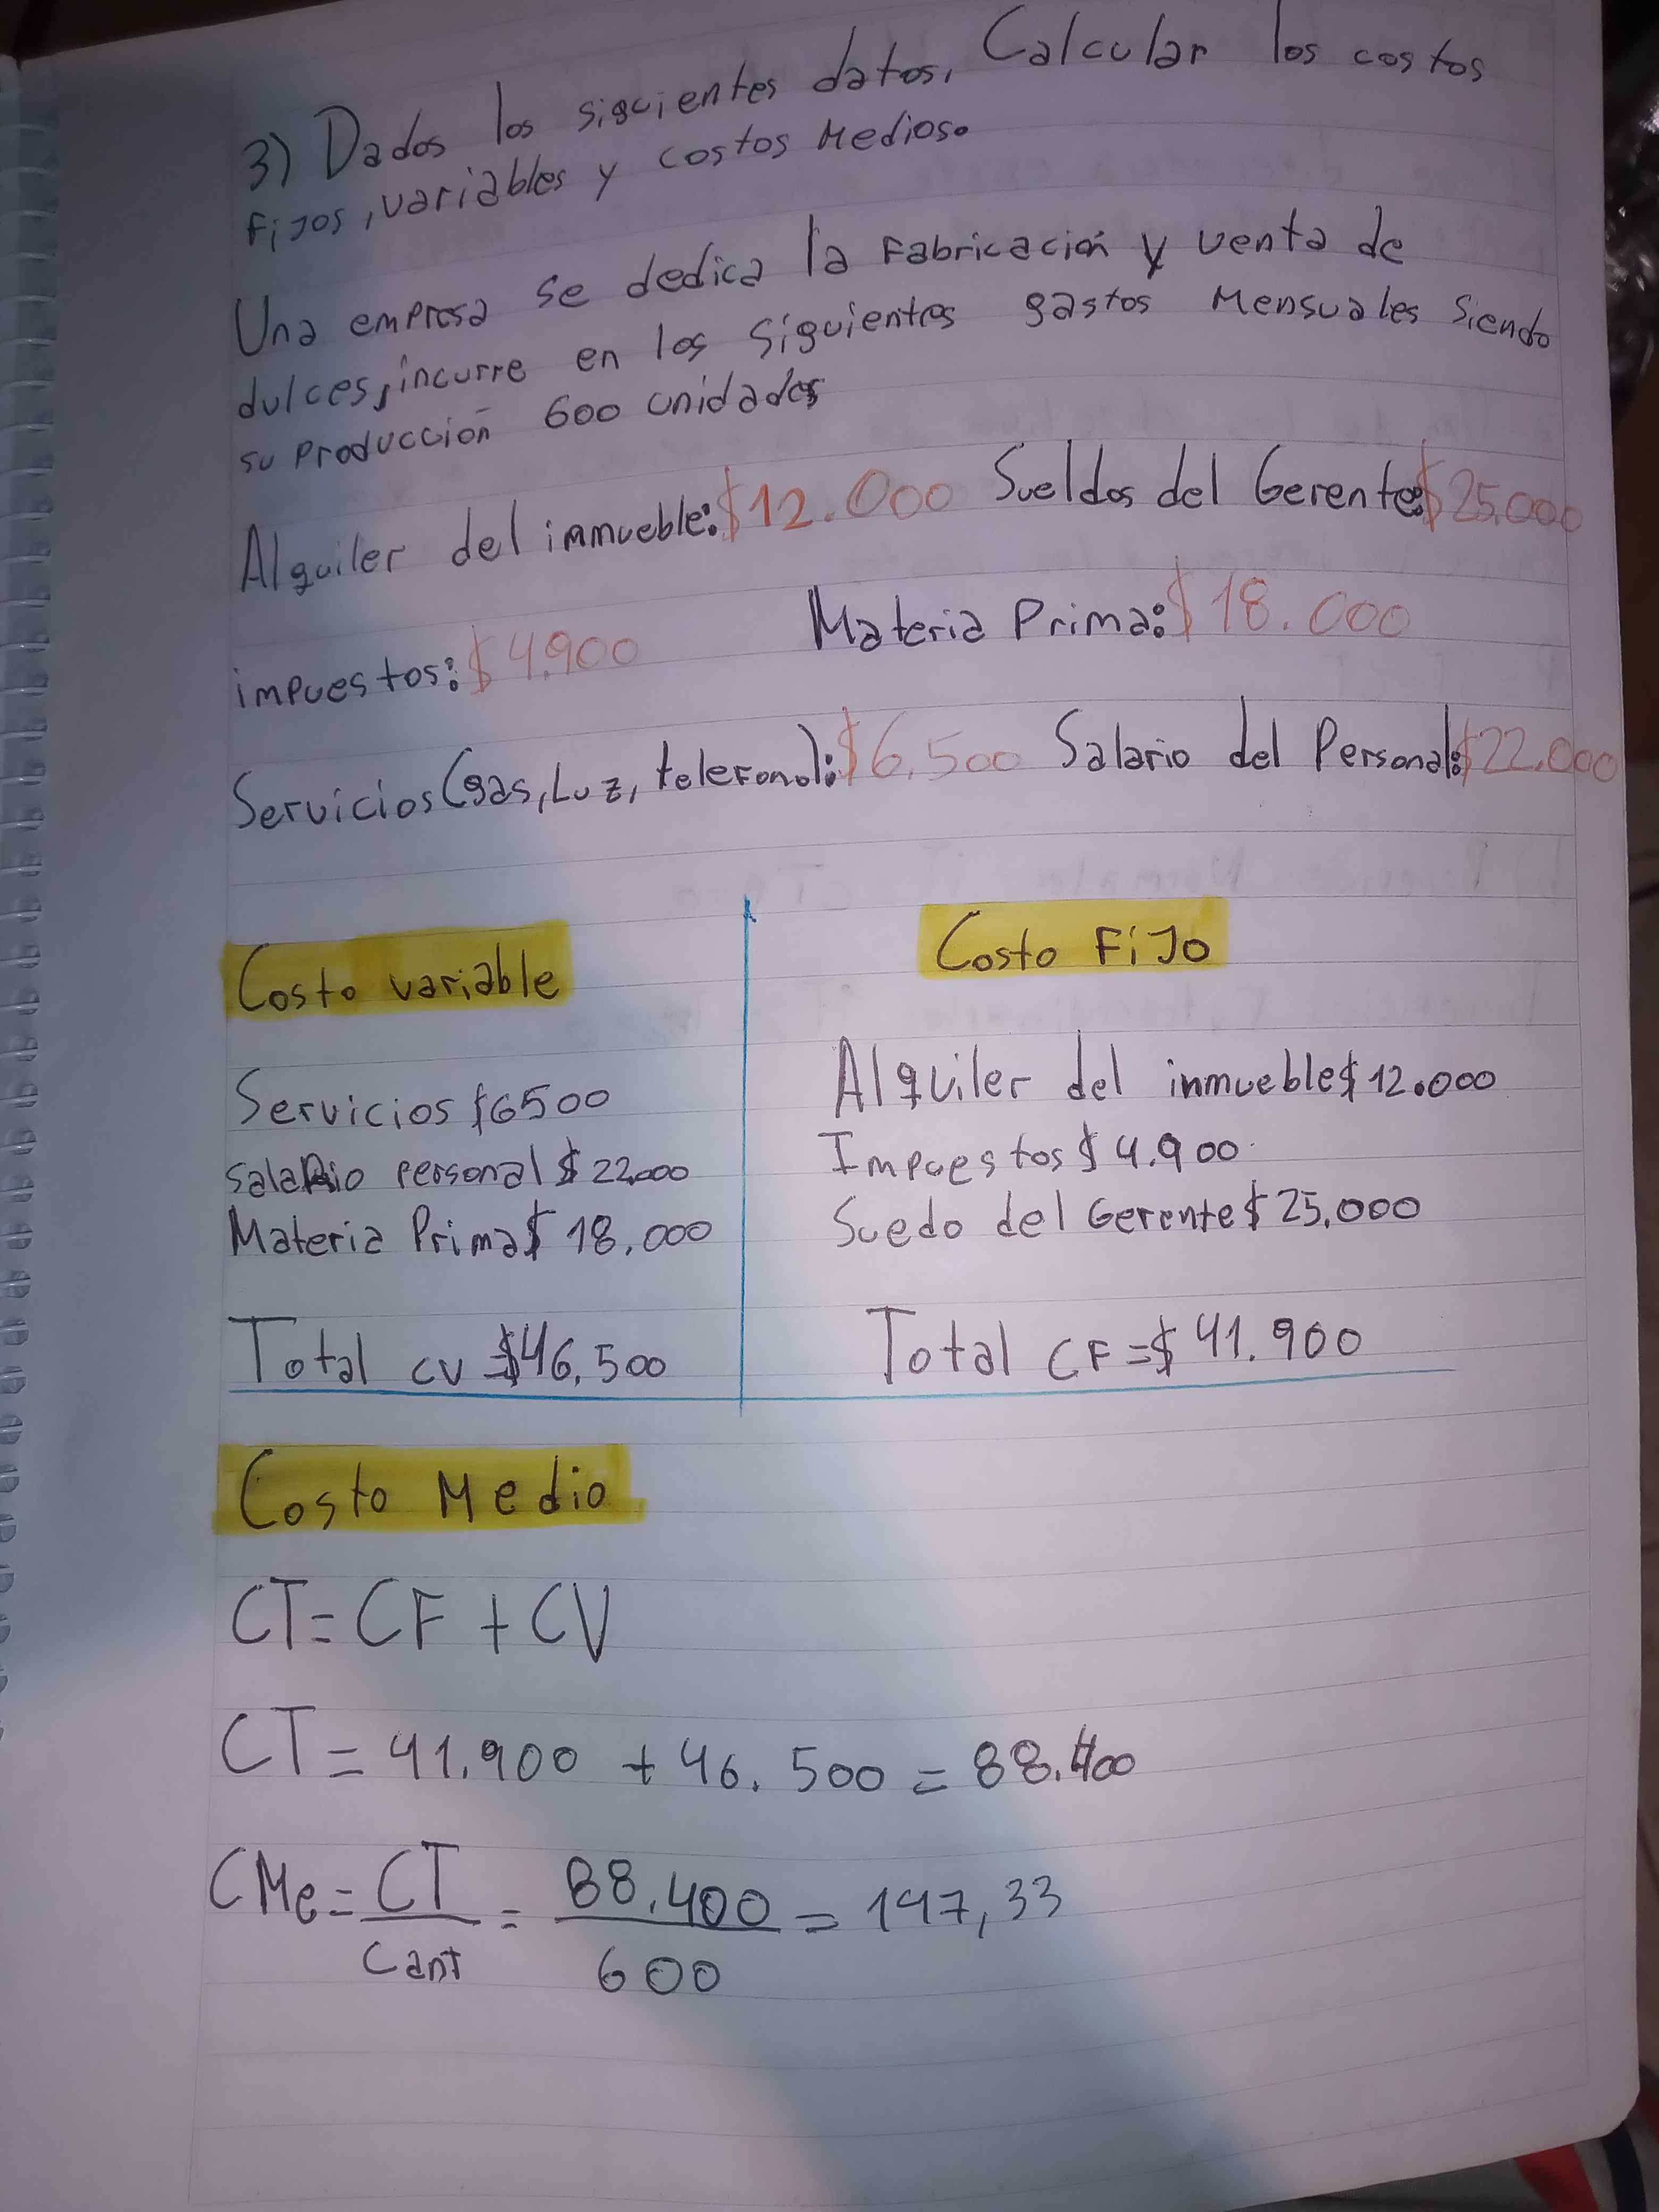 3) Dados los siguientes datos, Calcular los costos
Fijos, variables y costos Medios.
Una empresa se dedica la Fabricación y venta de
dulces, incurre en los siguientes gastos Mensuales Siendo
su Producción 600 unidades
Alquiler del inmueble: $12.000 Sueldos del Gerente: $25.000
impuestos: $4.900 Materia Prima: $18.000
Servicios (gas, Luz, teleFono): $6.500 Salario del Personal: $22.000
Costo variable Costo FiJo
Servicios $6500 Alquiler del inmueble $12.000
Salario personal $22.000 Impuestos $4.900
Materia Prima $18.000 Suedo del Gerente $25.000
Total CV = $46.500 Total CF = $41.900
Costo Medio
CT = CF + CV
CT = 41.900 + 46.500 = 88.400
CMe = CT / Cant = 88.400 / 600 = 147,33